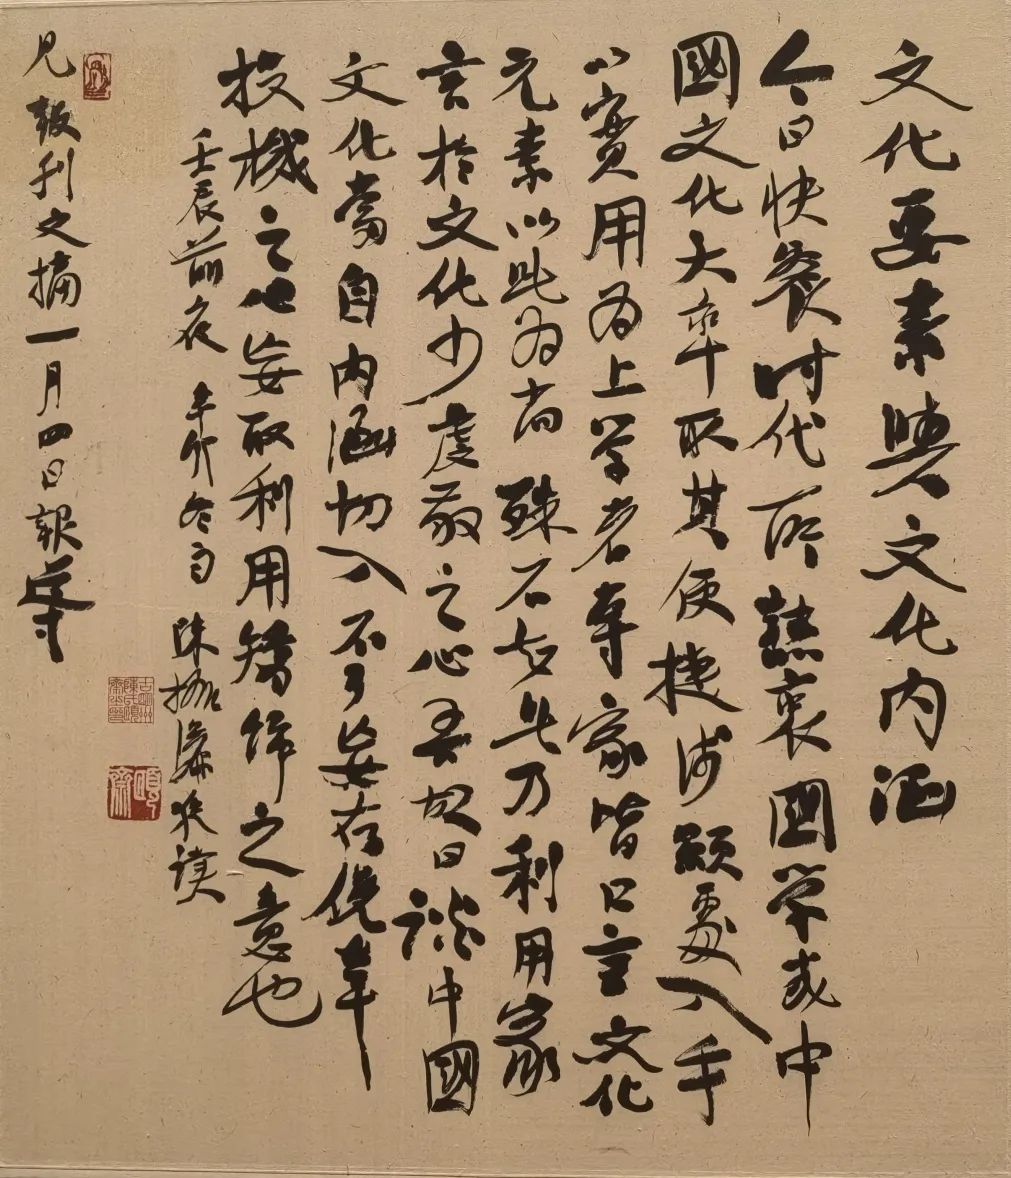 文化要素與文化内涵
今日快餐时代所熱衷國学或中
國文化大率取其便捷浅顯處入手
以實用为上学者專家皆口言文化
元素以此为尚殊不知此乃利用家
言於文化少虔敬之心吾故曰談中國
文化當自内涵切入不可妄存僥幸
投機之心妄取利用矯飾之意也
壬辰前夜 辛卯冬月 陳振濂夜讀
見報刊文摘一月四日報導